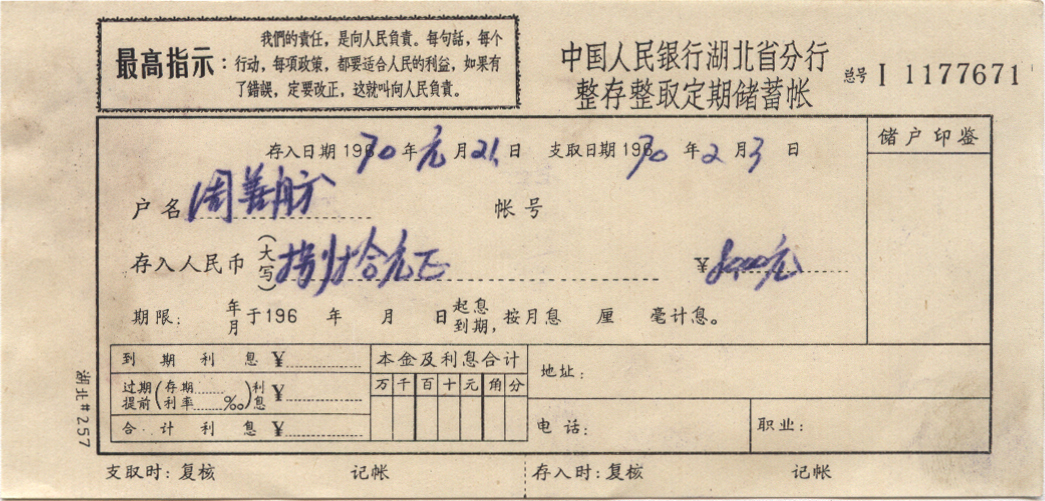 最高指示:
我們的責任,是向人民負責。每句話,每个
行动,每項政策,都要适合人民的利益,如果有
了錯誤,定要改正,这就叫向人民負責。
中国人民银行湖北省分行
整存整取定期储蓄帐
总号 I 1177671
存入日期 196 70 年 元 月 21 日 支取日期 196 70 年 2 月 3 日
储户印鉴
户名 周善舫 帐号
存入人民币(大写) 捌拾元正 ¥ 80.00元
期限: 年月 于196 年 月 日 起息到期, 按月息 厘 毫计息。
到期利息 ¥
过期提前(存期 利率 ‰)利息 ¥
合计利息 ¥
本金及利息合计
万 千 百 十 元 角 分
地址:
电话: 职业:
湖北#257
支取时:复核 记帐 存入时:复核 记帐